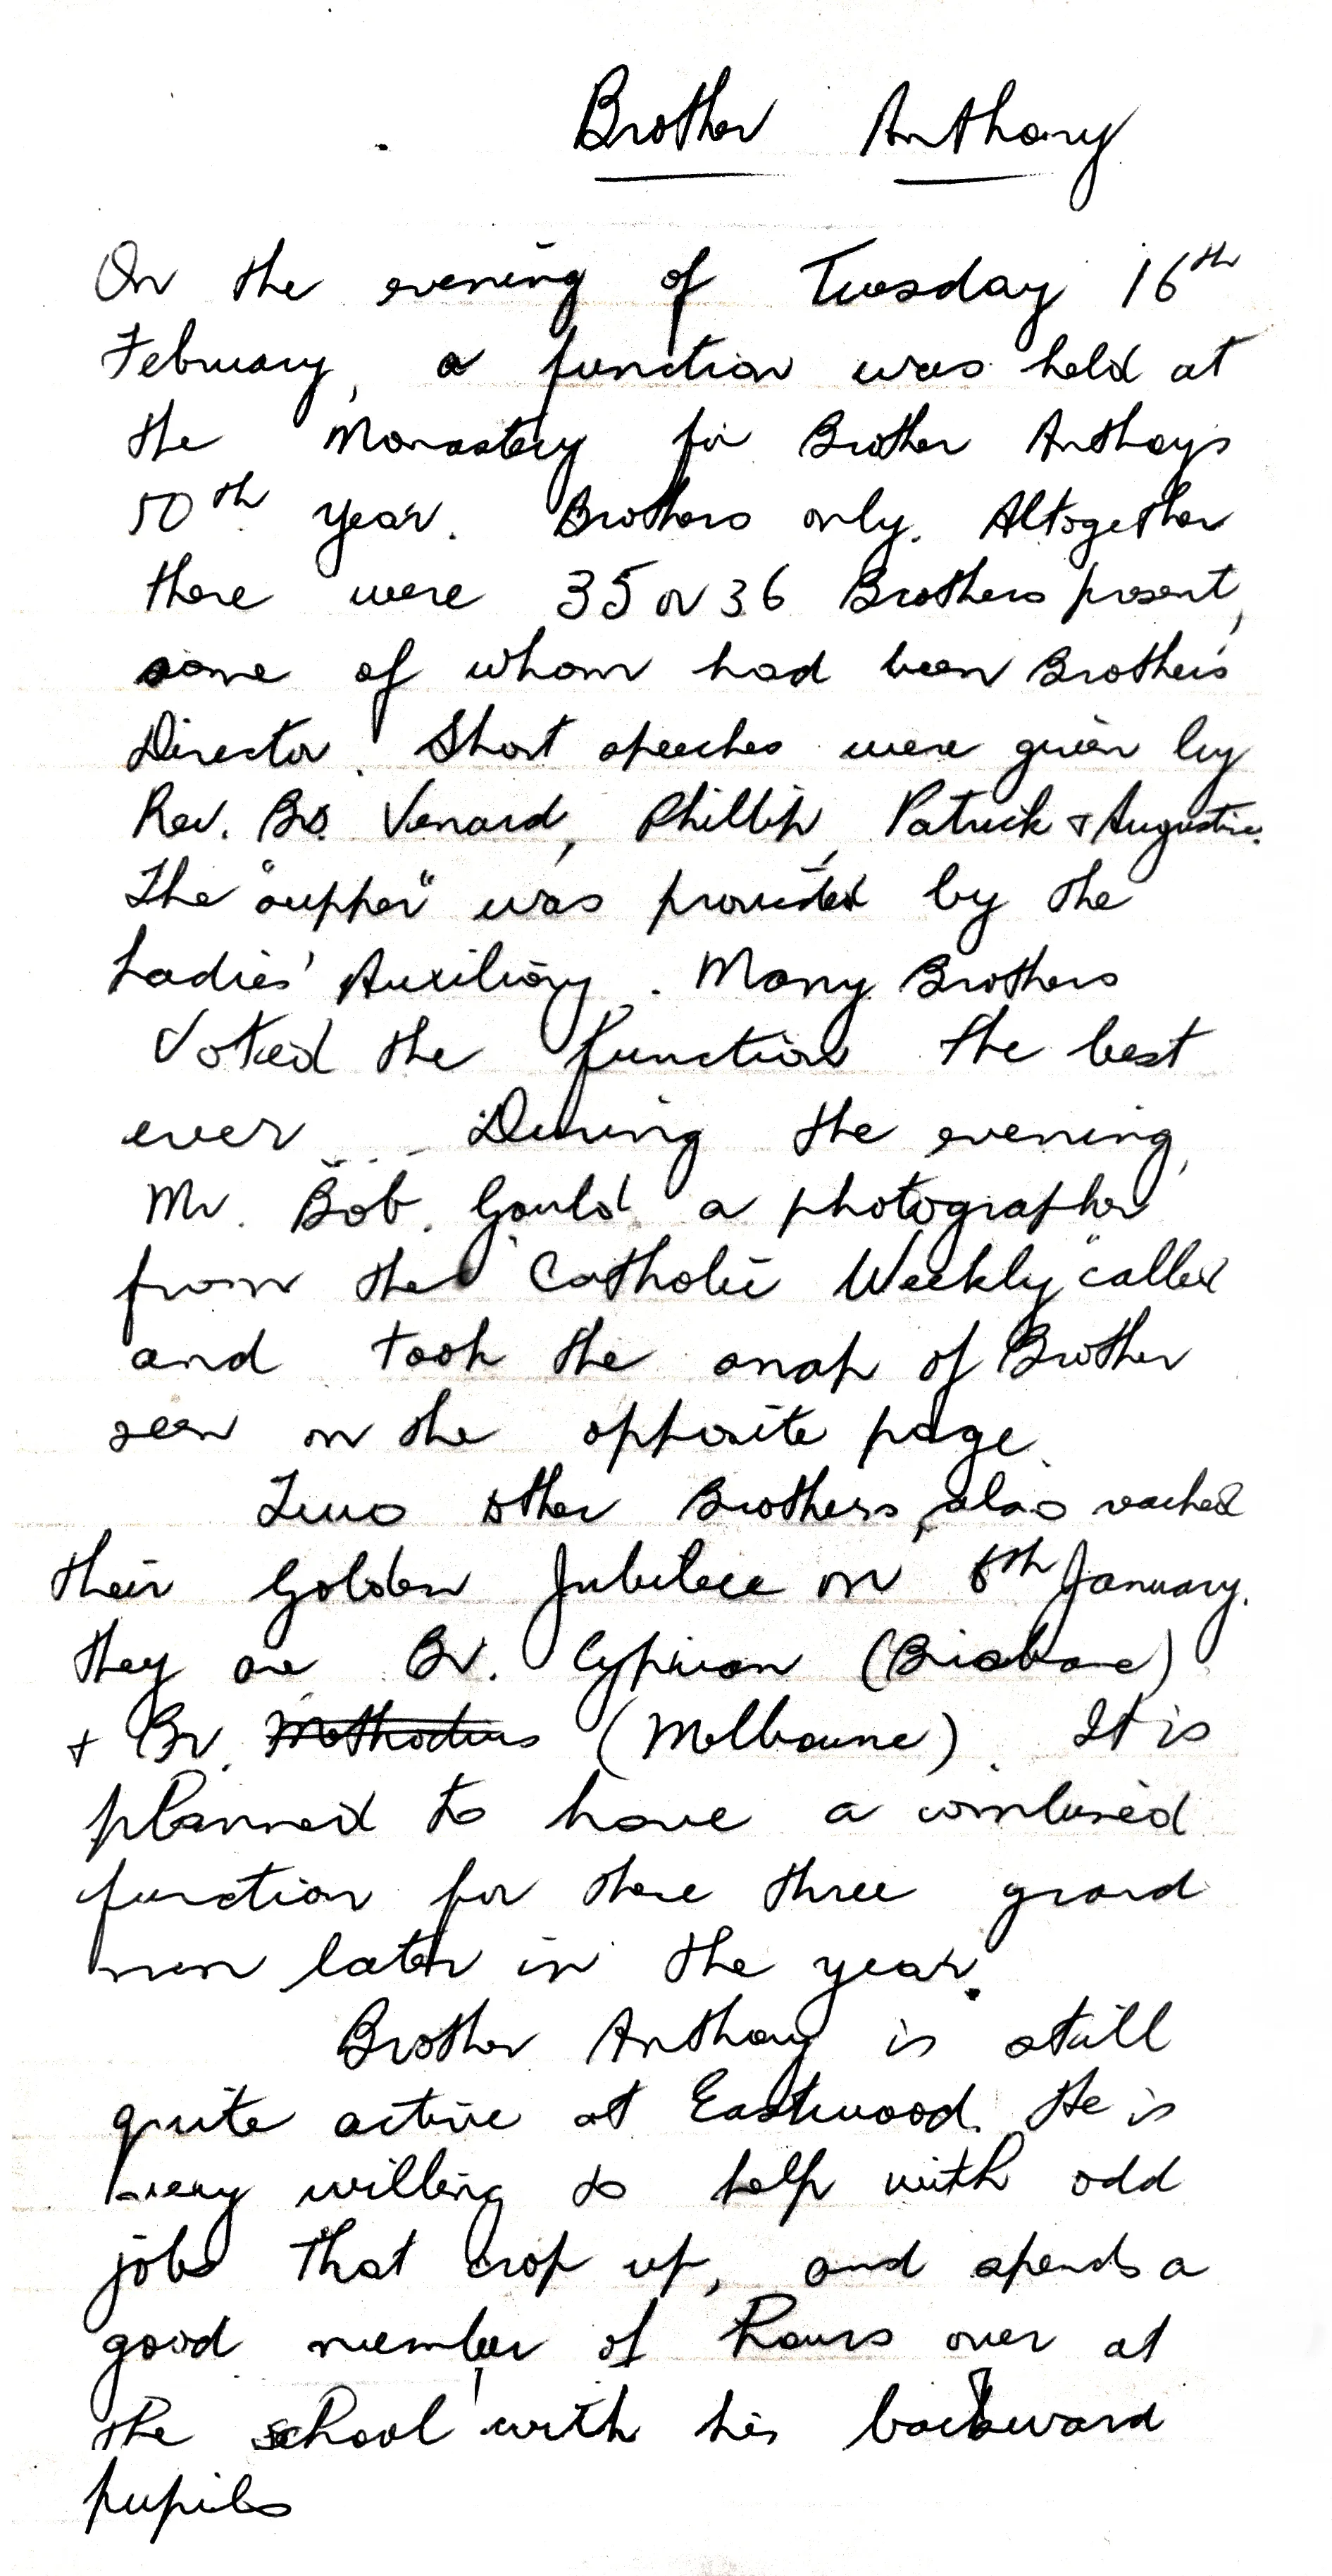 Brother Anthony
On the evening of Tuesday 16th
February, a function was held at
the Monastery for Brother Anthoys
50th year. Brothers only. Altogether
there were 35 or 36 Brothers present,
some of whom had been Brother's
Director. Short speeches were given by
Rev. Bro. Venard, Phillip, Patrick & Augustine.
The "supper" was provided by the
Ladies' Auxiliary. Many Brothers
Voted the function the best
ever... During the evening,
Mr. Bob. Gould a photographer
from the "Catholic Weekly" called
and took the snap of Brother
seen on the opposite page.
Two other Brothers, also reached
their Golden Jubilee on 6th January.
They are Br. Cyprian (Brisbane)
& Br. Methodius (Melbourne). It is
planned to have a combined
function for these three grand
men later in the year.
Brother Anthony is still
quite active at Eastwood. He is
very willing to help with odd
jobs that crop up, and spends a
good number of hours over at
the school with his backward
pupils